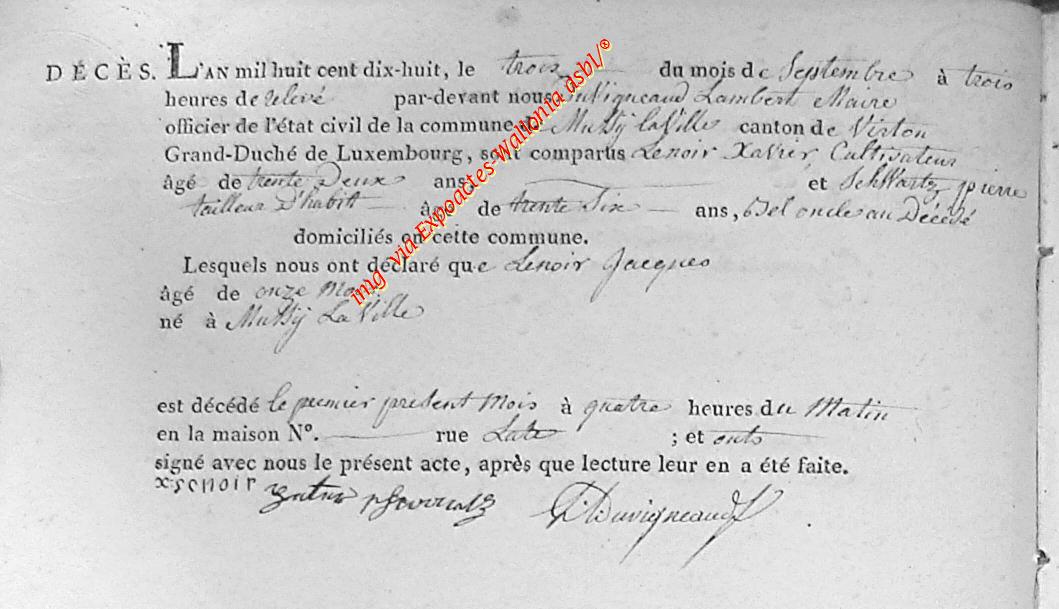 DÉCÈS. L'AN mil huit cent dix-huit, le trois du mois de Septembre à trois
heures de relevé par-devant nous Duvigneaud Lambert Maire
officier de l'état civil de la commune de Mussÿ laville canton de Virton
Grand-Duché de Luxembourg, sont comparus Lenoir Xavier, Cultivateur
âgé de trente Deux ans, et Schwartz pierre
tailleur D'habit âgé de trente Six ans, Bel oncle au Décédé
domiciliés en cette commune.
Lesquels nous ont déclaré que Lenoir Jacques
âgé de onze Mois
né à Mussÿ LaVille
est décédé le premier présent Mois à quatre heures du Matin
en la maison N°. rue Late ; et onts
signé avec nous le présent acte, après que lecture leur en a été faite.
x Lenoir Duvigneaud
img via Expoactes-Wallonia asbl/®